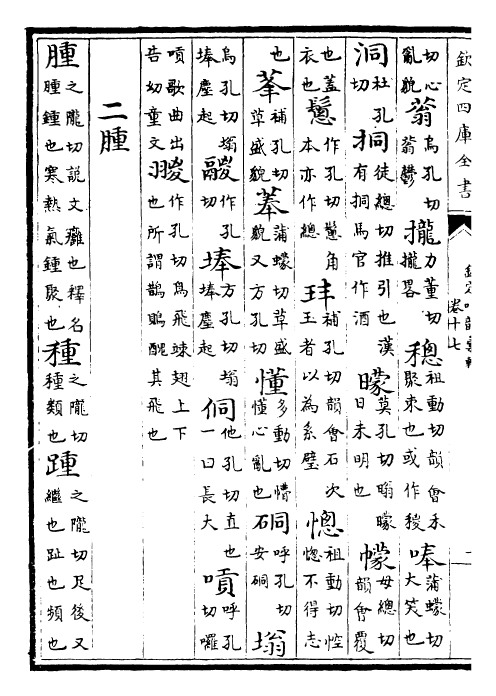 欽定四庫全書
卷十七
二
切心亂貌 蓊 烏孔切蓊鬱 攏 力董切攏畧 祖動切韻會禾聚束也或作稯 唪 蒲蠓切大笑也
洞 杜孔切 挏 徒總切推引也漢有挏馬官作酒 曚 莫孔切暡曚日未明也 幪 母總切韻會覆
也蓋衣也 作孔切角本亦作總 玤 補孔切韻會石次玉者以為系璧 愡 祖動切悾愡不得志
也 菶 補孔切草盛貌 菶 蒲蠓切草盛貌又方孔切 懂 多動切懵懂心亂也 硐 呼孔切安硐 塕
烏孔切塕埲塵起 鬷 作孔切 埲 方孔切塕埲塵起 侗 他孔切直也一曰長大 嗊 呼孔切囉
嗊歌曲出告幼童文 翪 作孔切鳥飛竦翅上下也所謂鵲鵙醜其飛也
二腫
腫 之隴切說文癰也釋名腫鍾也寒熱氣鍾聚也 種 之隴切種類也 踵 之隴切足後又繼也趾也頻也